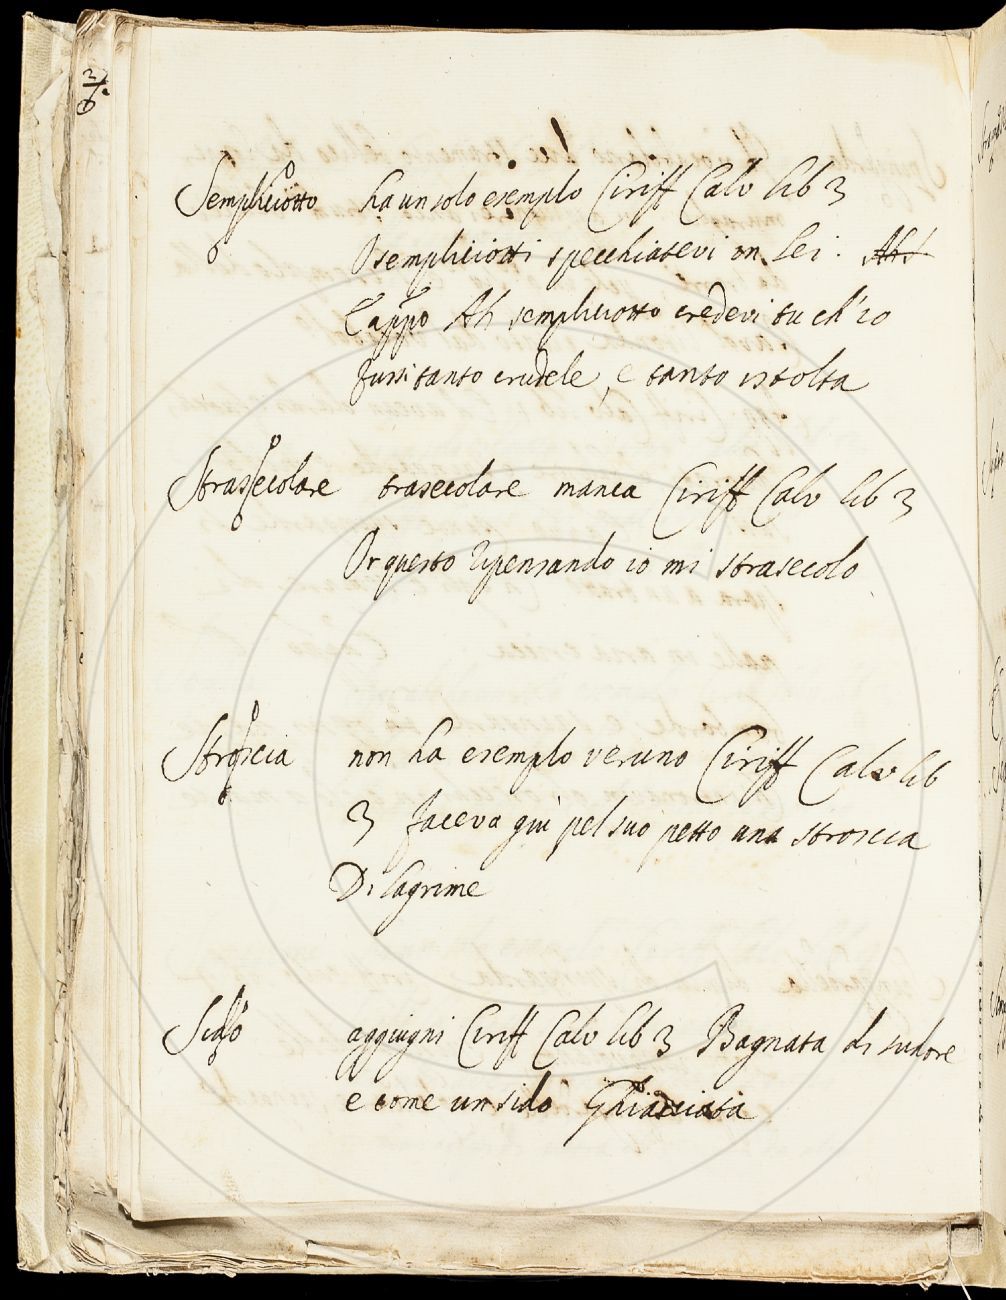 Sempliciotto ha un solo esemplo Ciriff Calv lib 3
O sempliciotti specchiatevi in lei. Ah s
Cappo Ah sempliciotto credevi tu ch'io
fussi tanto crudele, e tanto istolta
Strassecolare trasecolare manca Ciriff Calv lib 3
Or questo ripensando io mi strasecolo
Stroscia non ha esemplo veruno Ciriff Calv lib
3 faceva giu pel suo petto una stroscia
Di lagrime
Sido aggiugni Ciriff Calv lib 3 Bagnata di sudore
e come un sido Ghiacciata